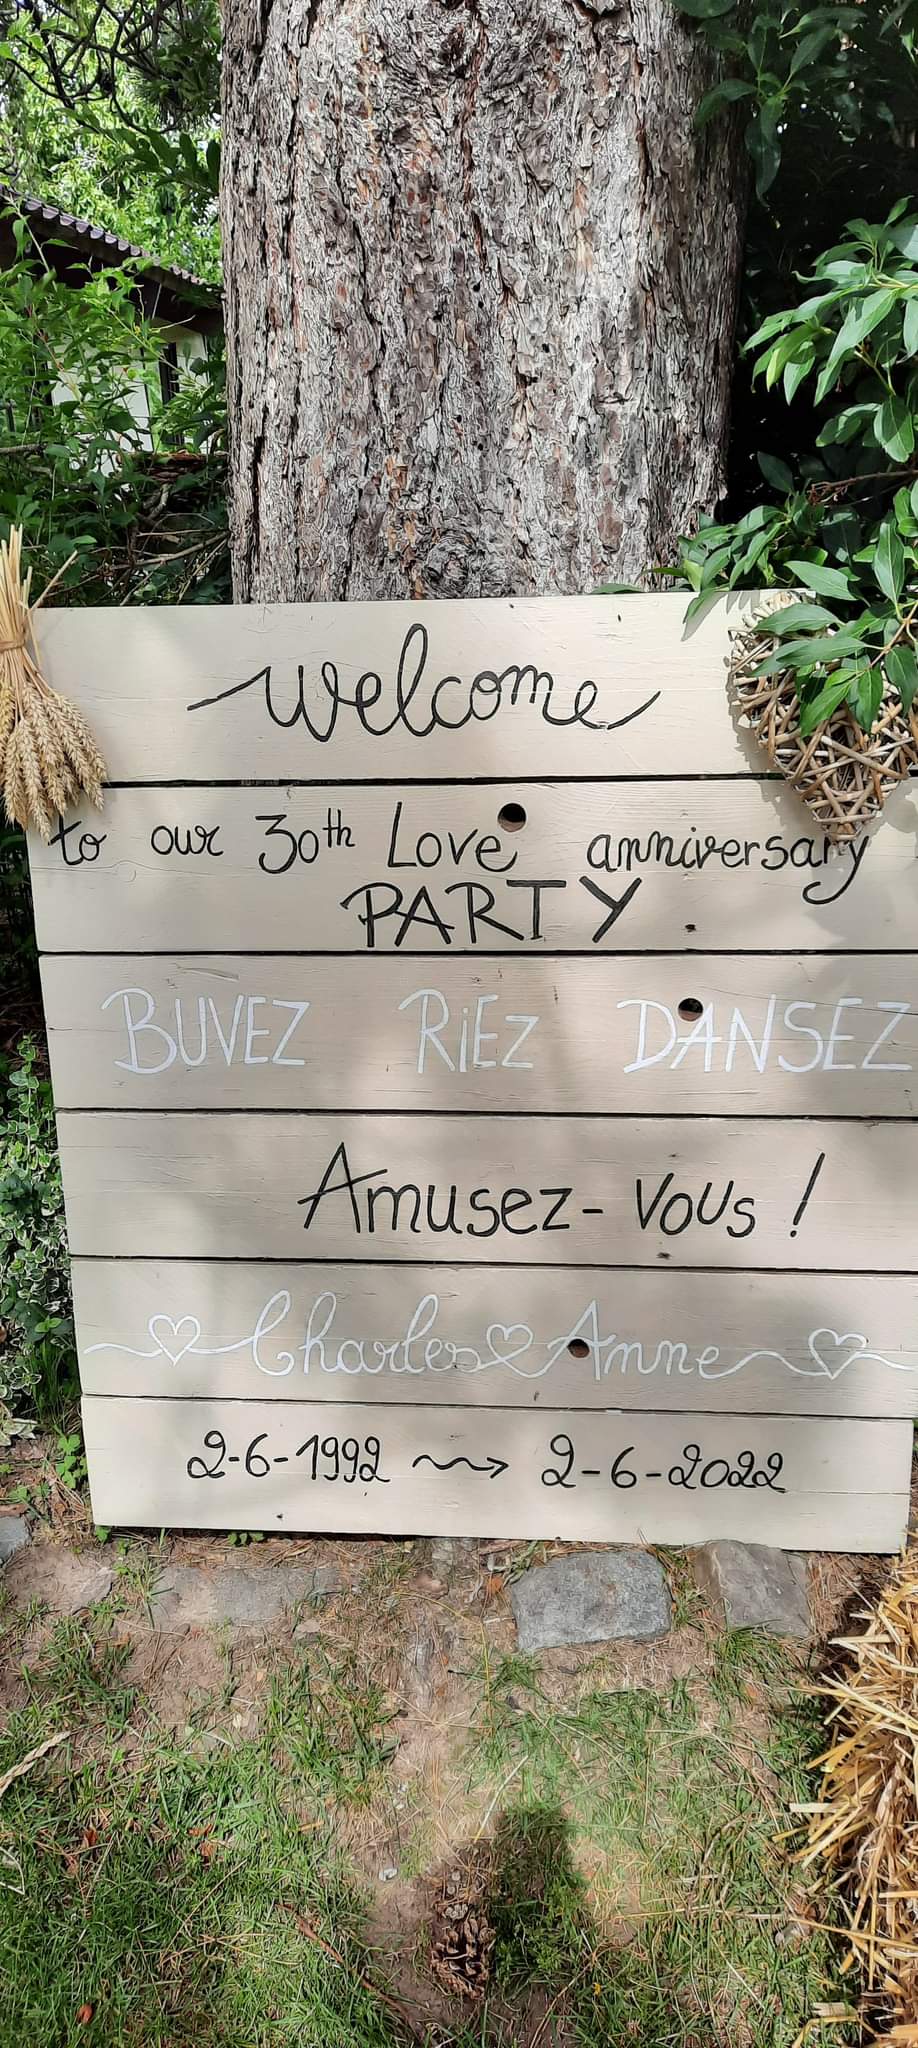 welcome
to our 30th Love anniversary
PARTY
BUVEZ RiEZ DANSEZ
Amusez-vous !
Charles Anne
2-6-1992 → 2-6-2022